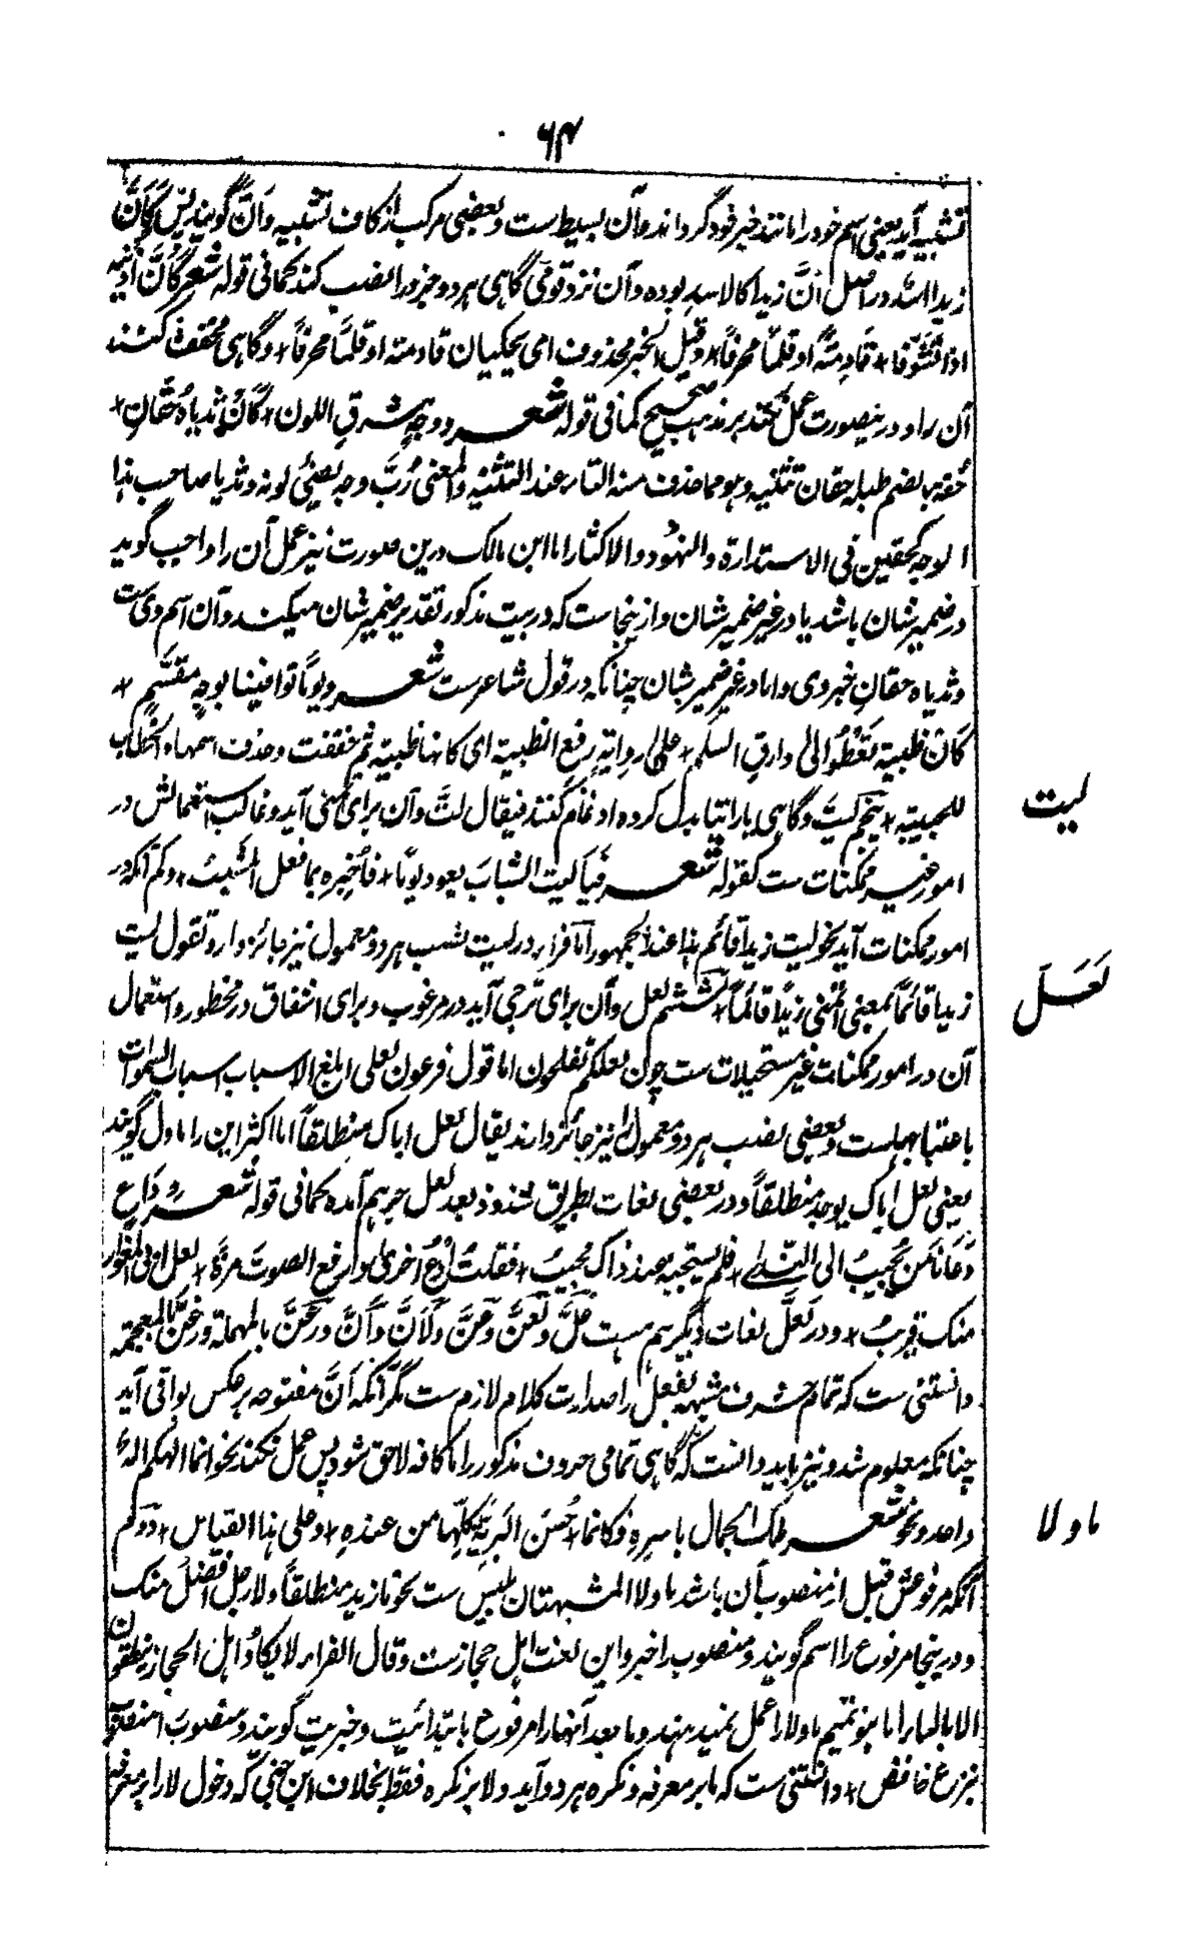 ۶۴
تشبیه آید یعنی اسم خود را مانند خبر خود گرداند و آن بسیط ست و بعضی مرکب از کاف تشبیه و اَنَّ گویند پس کَاَنَّ
زیدا الاسد در اصل اَنَّ زیدا کالاسد بوده و آن نزد قومی گاهی هر دو جزو را نصب کند کما فی قوله شعر کَاَنَّ اُذنیه
اذا تَشَوَّفا + قَادِمَةً او قلماً محرفاً + و قیل الخبر محذوف ای یحکیان قادمة او قلماً محرفاً + و گاهی مخفف کنند
آن را و درینصورت عمل نکند بر مذهب صحیح کما فی قوله شعر و وجهٍ مشرقِ اللون + کَاَنْ ثدیاه حُقَّانِ +
حُقه بالضم طبله حقان تثنیه و هو مما حذف منه التاء عند التثنیه والمعنی رُبَّ وجه یضئ لونه و ثدیا صاحب هذا
الوجه کحقین فی الاستدارة والنهود والاکثار اما ابن مالک درین صورت نیز عمل آن را واجب گوید
در ضمیر شان باشد یا در غیر ضمیر شان و ازینجاست که در بیت مذکور تقدیر ضمیر شان میکند و آن اسم وی ست
و ثدیاه حقان خبر وی و اما در غیر ضمیر شان چنانکه در قول شاعر ست شعر و یوماً توافینا بوجهٍ مقسَّمٍ +
کان ظبیة تعطُوا الی وارقِ السلم + علی روایةِ رفع الظبیة ای کانها ظبیة ثم خففت و حذف اسمها و الخطاب
للحبیبة + پنجم لیتَ و گاهی یا را بتا بدل کرده ادغام کنند فیقال لتَّ و آن برای تمنی آید و غالب استعمالش در
امور غیر ممکنات ست کقوله شعر فَیَا لیتَ الشبابَ یعود یوماً + فأُخبره بما فعل المشیبُ + و کم آنکه در
امور ممکنات آید نحو لیت زیداً قائم هذا عند الجمهور اما فراء در لیت نصب هر دو معمول نیز جائز دارد تقول لیت
زیدا قائماً بمعنی اتمنی زیداً قائماً + ششم لعل و آن برای ترجی آید در مرغوب و برای اشفاق در محظور و استعمال
آن در امور ممکنات غیر مستحیلات ست چون لعلکم تفلحون اما قول فرعون لعلی ابلغ الاسباب اسباب السموات
باعتبار جهلست و بعضی نصب هر دو معمول را نیز جائز دارند یقال لعل اباک منطلقاً اما اکثر این را ماول گویند
یعنی لعل اباک یوجد منطلقاً و در بعضی لغات بطریق شذوذ بعد لعل جر هم آمده کما فی قوله شعر و داعٍ
دَعَانا مَن یُجیبُ الی الندا + فلم یستجبه عند ذاک مجیبُ + فقلتُ ادعُ اخری و ارفع الصوتَ مرةً + لعل ابی المغوار
منک قریبُ + و در لَعَلَّ لغات دیگر هم ست عَلَّ و لَعَنَّ و عَنَّ و لَاَنَّ و اَنَّ و رَعَنَّ بالمهملة و رغَنَّ بالمعجمة
دانستنی ست که تمام حروف مشبهه بفعل را صدارت کلام لازم ست مگر آنکه اَنَّ مفتوحه بر عکس بواقی آید
چنانکه معلوم شد و نیز باید دانست که گاهی تمامی حروف مذکور را ما کافه لاحق شود پس عمل نکند نحو انما الهکم اله
واحد و نحو شعر ملک الجمال باسره فکانما + حُسن البریة کلها من عنده + و علی هذا القیاس + دوم
آنکه مرفوعش قبل از منصوب آن باشد ما و لا المشبهتان بلیس ست نحو ما زید منطلقاً و لا رجل افضلَ منک
و درینجا مرفوع را اسم گویند و منصوب را خبر و این لغت اهل حجاز ست و قال الفراء لا یکادُ اهل الحجاز ینطقون
الا بالباء اما بنو تمیم ما و لا را عمل نمیدهند و ما بعد آنها را مرفوع بابتدائیت و خبریت گویند و منصوب را منصوب
بنزع خافض + و دانستنی ست که ما بر معرفه و نکره هر دو آید و لا بر نکره فقط بخلاف ابن جنی که دخول لا را بر معرفه
لیت
لَعَلَّ
ما و لا